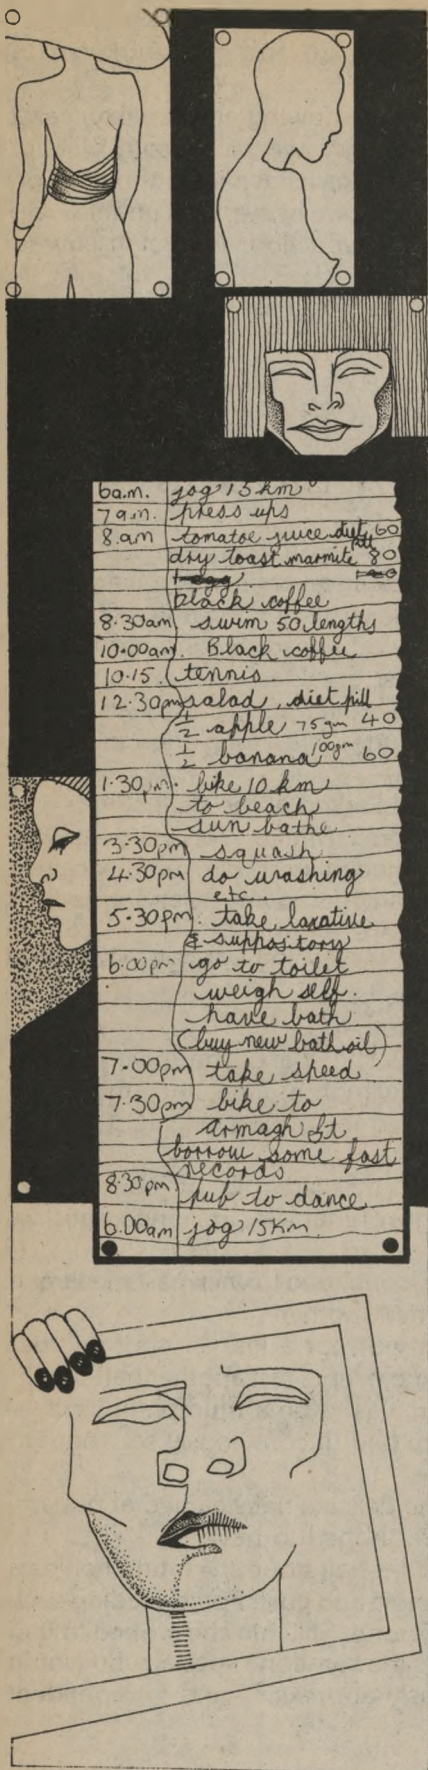 6a.m. jog 15 km
7am. press ups
8.am tomatoe juice diet pill 60
dry toast marmite 80
1 egg
black coffee
8.30am swim 50 lengths
10.00am. Black coffee
10.15. tennis
12.30pm salad, diet pill
1/2 apple 75gm 40
1/2 banana 100gm 60
1.30pm. bike 10 km
to beach
sun bathe
3.30pm squash
4.30pm do washing
etc.
5.30pm. take laxative
& suppository
6.00pm go to toilet
weigh self.
have bath
(buy new bath oil)
7.00pm take speed
7.30pm bike to
armagh St
borrow some fast
records
8.30pm pub to dance
6.00am jog 15Km.